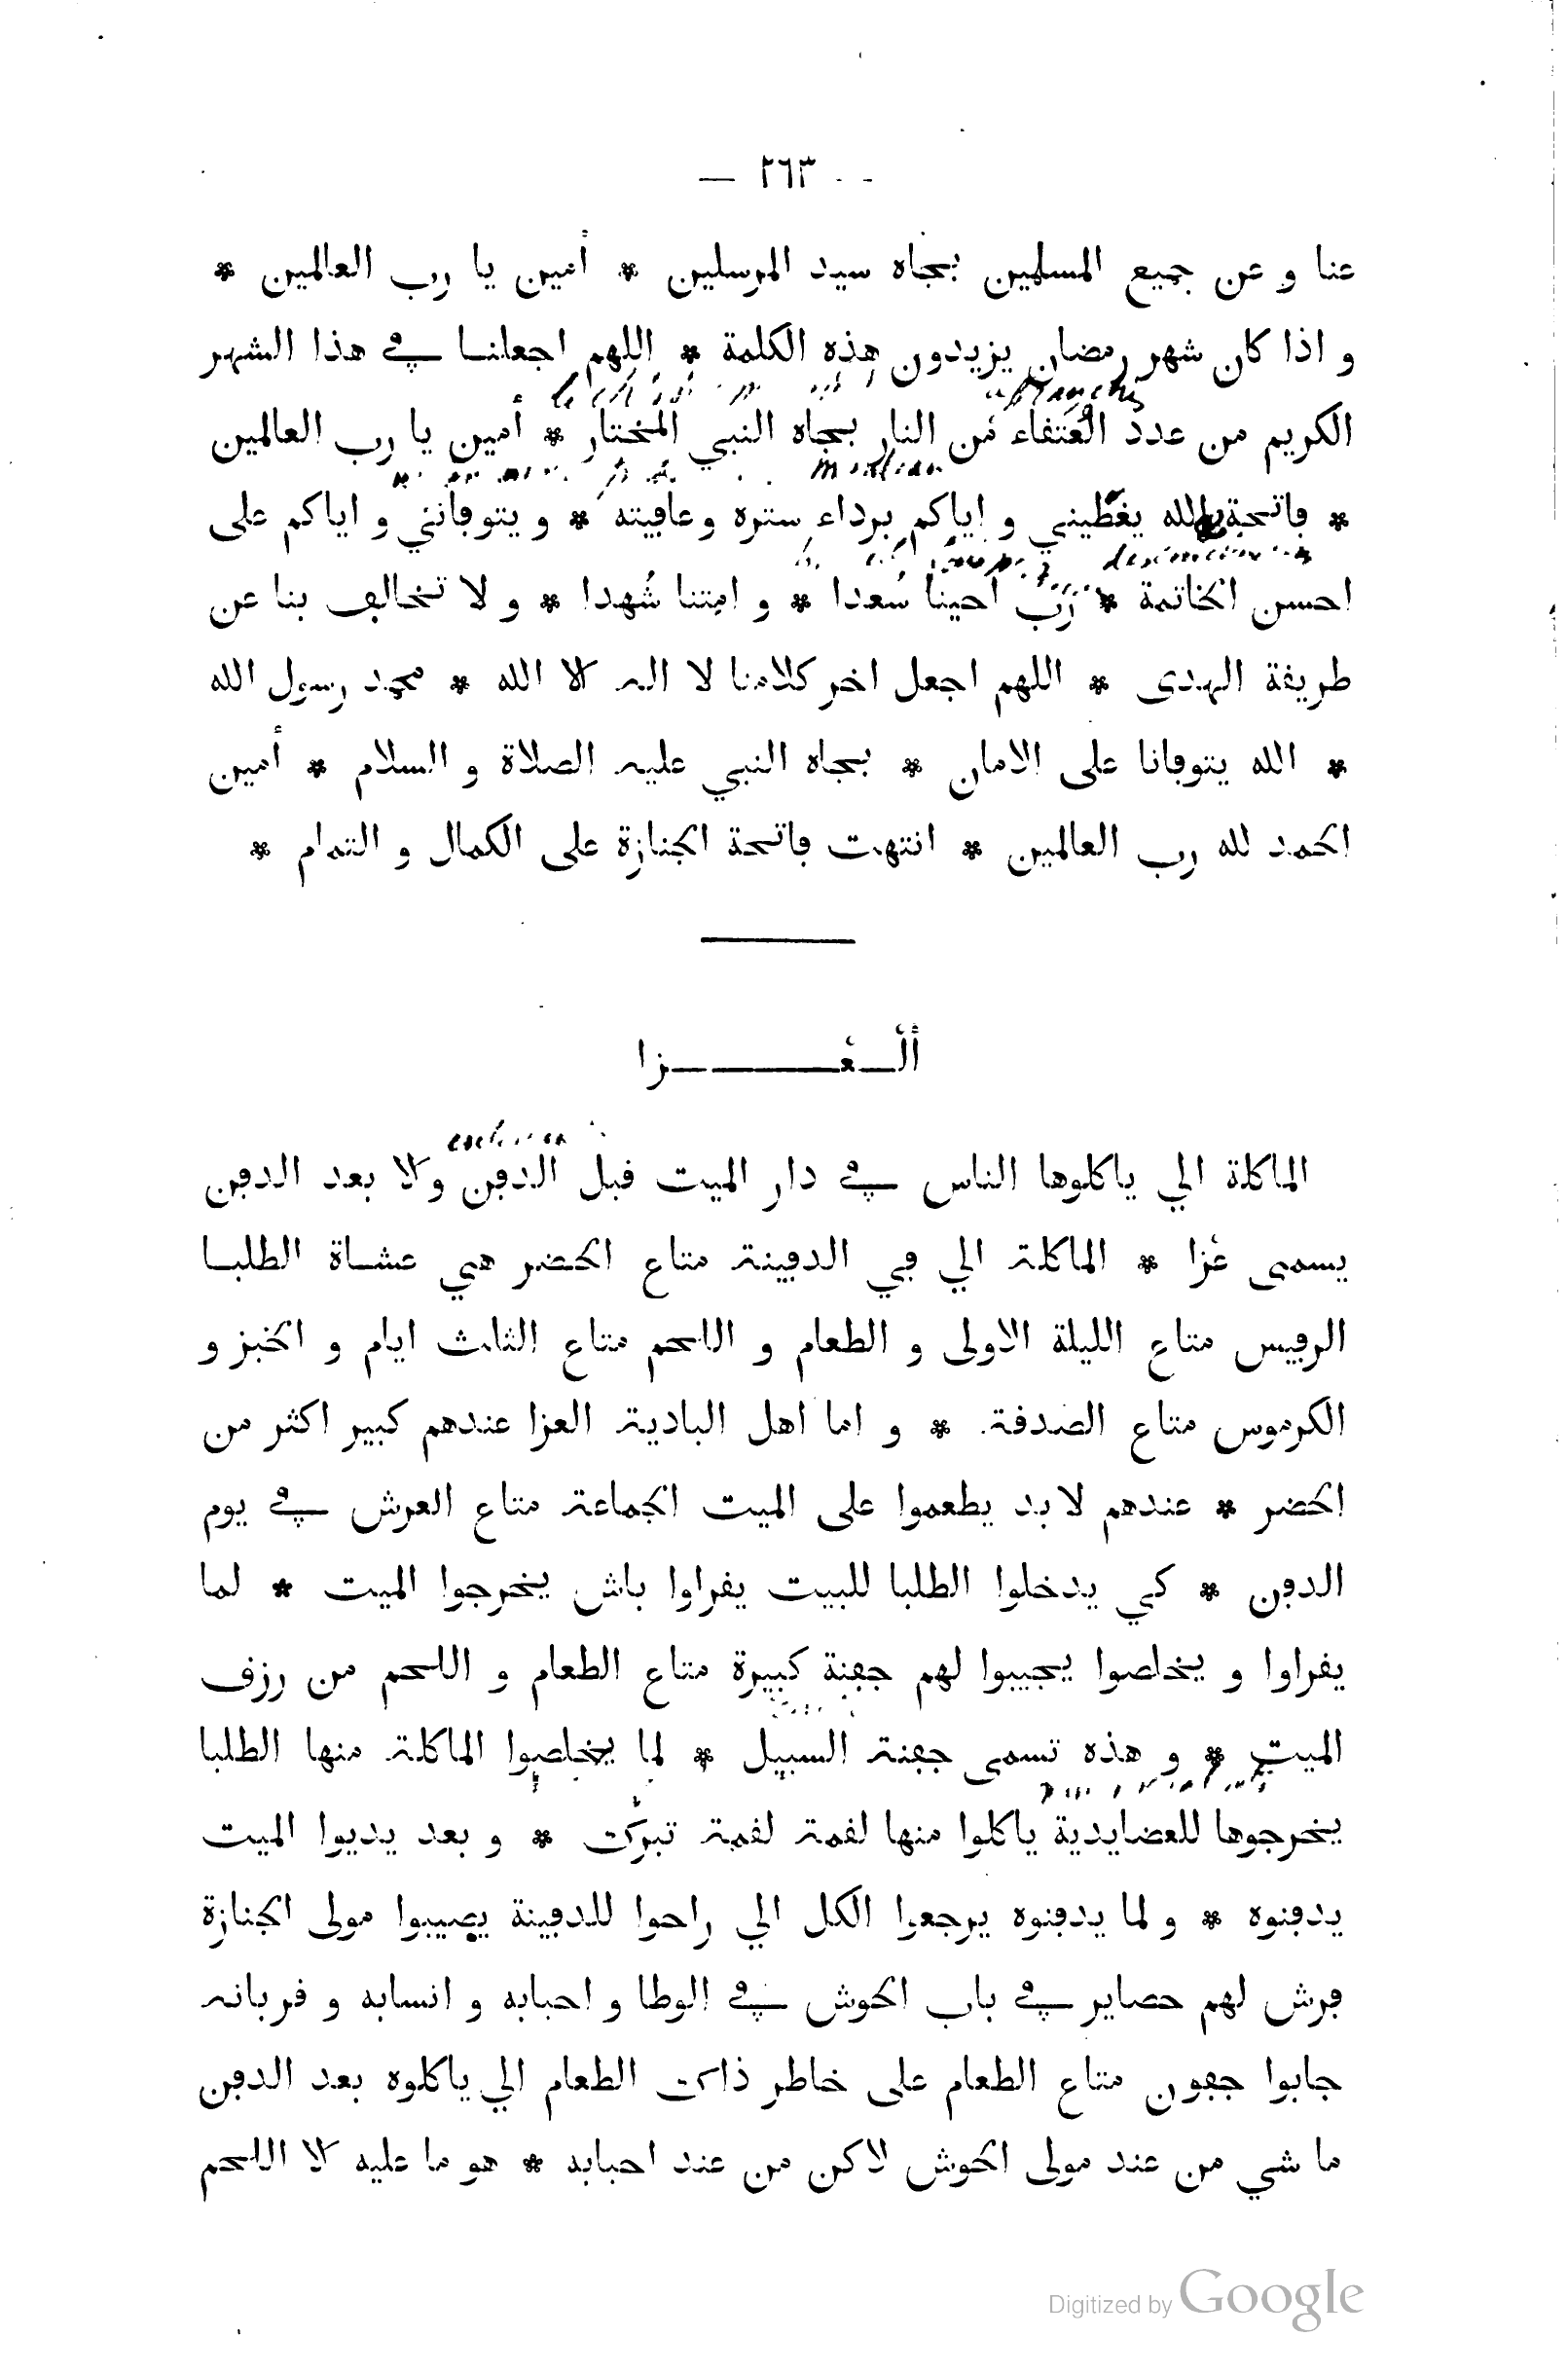 — ٢٦٣ —
عنا و عن جميع المسلمين بجاه سيد المرسلين * أمين يا رب العالمين *
و اذا كان شهر رمضان يزيدون هذه الكلمة * اللهم اجعلنا في هذا الشهر
affranchis
الكريم من عدد العُتَقاء مَن النار بجاه النبي المختار * أمين يا رب العالمين
* فاتحة الله يغطّيني و اياكم برداء ستره وعافيته * و يتوفانني و اياكم على
احسن الخاتمة * رَبّ احينا سُعدا * و امتنا شُهدا * و لا تخالف بنا عن
طريقة الهدى * اللهم اجعل اخر كلامنا لا اله الا الله * محمد رسول الله
* الله يتوفانا على الامان * بجاه النبي عليه الصلاة و السلام * أمين
الحمد لله رب العالمين * انتهت فاتحة الجنازة على الكمال و التمام *
ألْعُزا
الماكلة الي ياكلوها الناس في دار الميت قبل الدفن ولا بعد الدفن
يسمى عُزا * الماكلة الي في الدفينة متاع الحضر هي عشاة الطلبا
الرفيس متاع الليلة الاولى و الطعام و اللحم متاع الثلث ايام و الخبز و
الكرموس متاع الصدقة * و اما اهل البادية العزا عندهم كبير اكثر من
الحضر * عندهم لابد يطعموا على الميت الجماعة متاع العرش في يوم
الدفن * كي يدخلوا الطلبا للبيت يقراوا باش يخرجوا الميت * لما
يقراوا و يخلصوا يجيبوا لهم جفنة كبيرة متاع الطعام و اللحم من رزق
الميت * و هذه تسمى جفنة السبيل * لما يخلصوا الماكلة منها الطلبا
يخرجوها للعضايدية ياكلوا منها لقمة لقمة تبرُّك * و بعد يديوا الميت
يدفنوه * و لما يدفنوه يرجعوا الكل الي راحوا للدفينة يصيبوا مولى الجنازة
فرش لهم حصاير في باب الحوش في الوطا و احبابه و انسابه و قربانه
جابوا جفون متاع الطعام على خاطر ذاك الطعام الي ياكلوه بعد الدفن
ما شي من عند مولى الحوش لاكن من عند احبابه * هو ما عليه الا اللحم
Digitized by Google